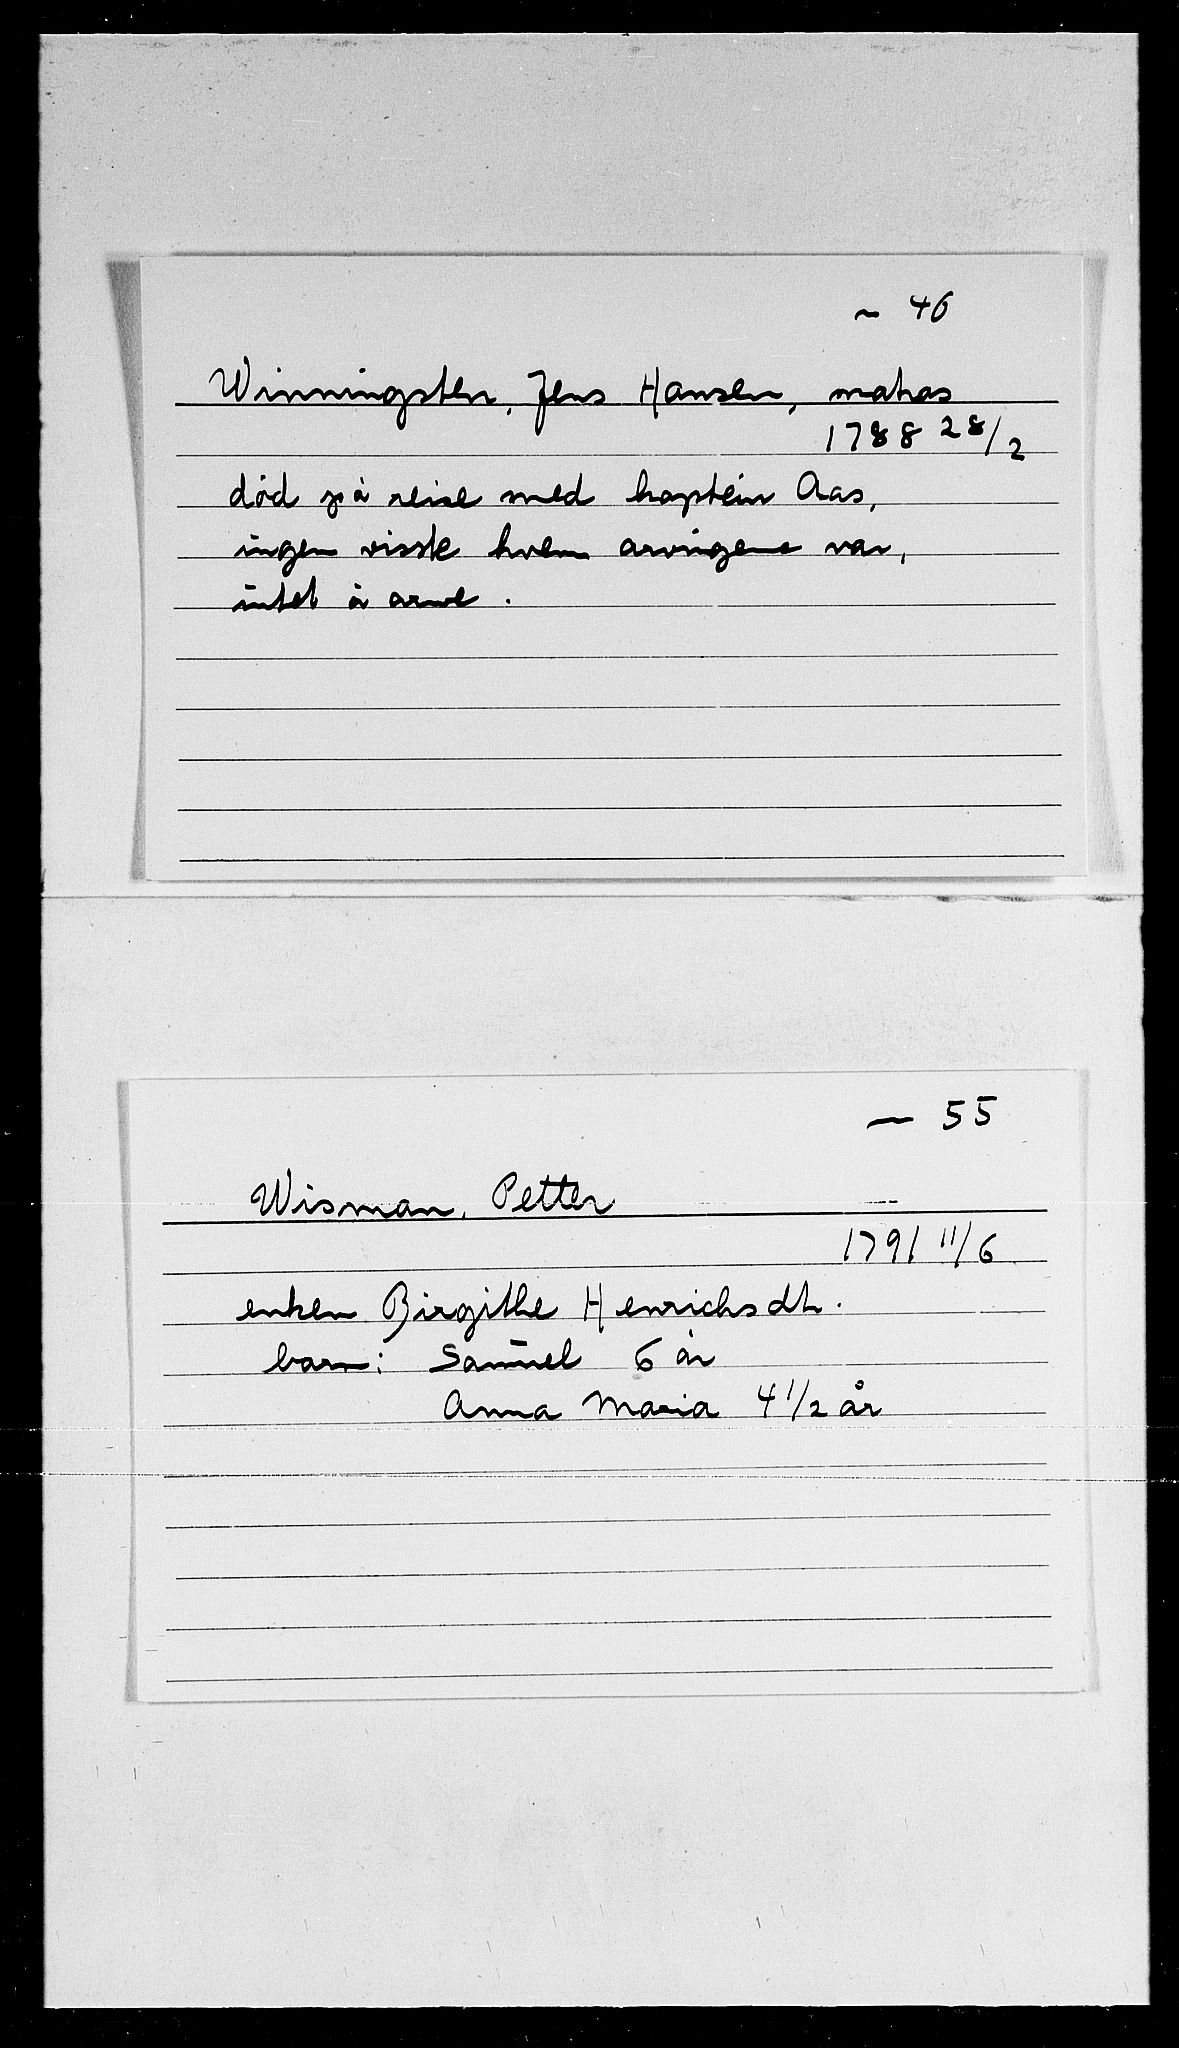 ~ 46
Winningsten, Jens Hansen, matros
1788 28/2
död på reise med kaptein Aas,
ingen visste hvem arvingene var,
intet å arve.
— 55
Wisman, Petter
1791 11/6
enken Birgithe Henrichsdt.
barn: Samuel 6 år
Anna Maria 4 1/2 år